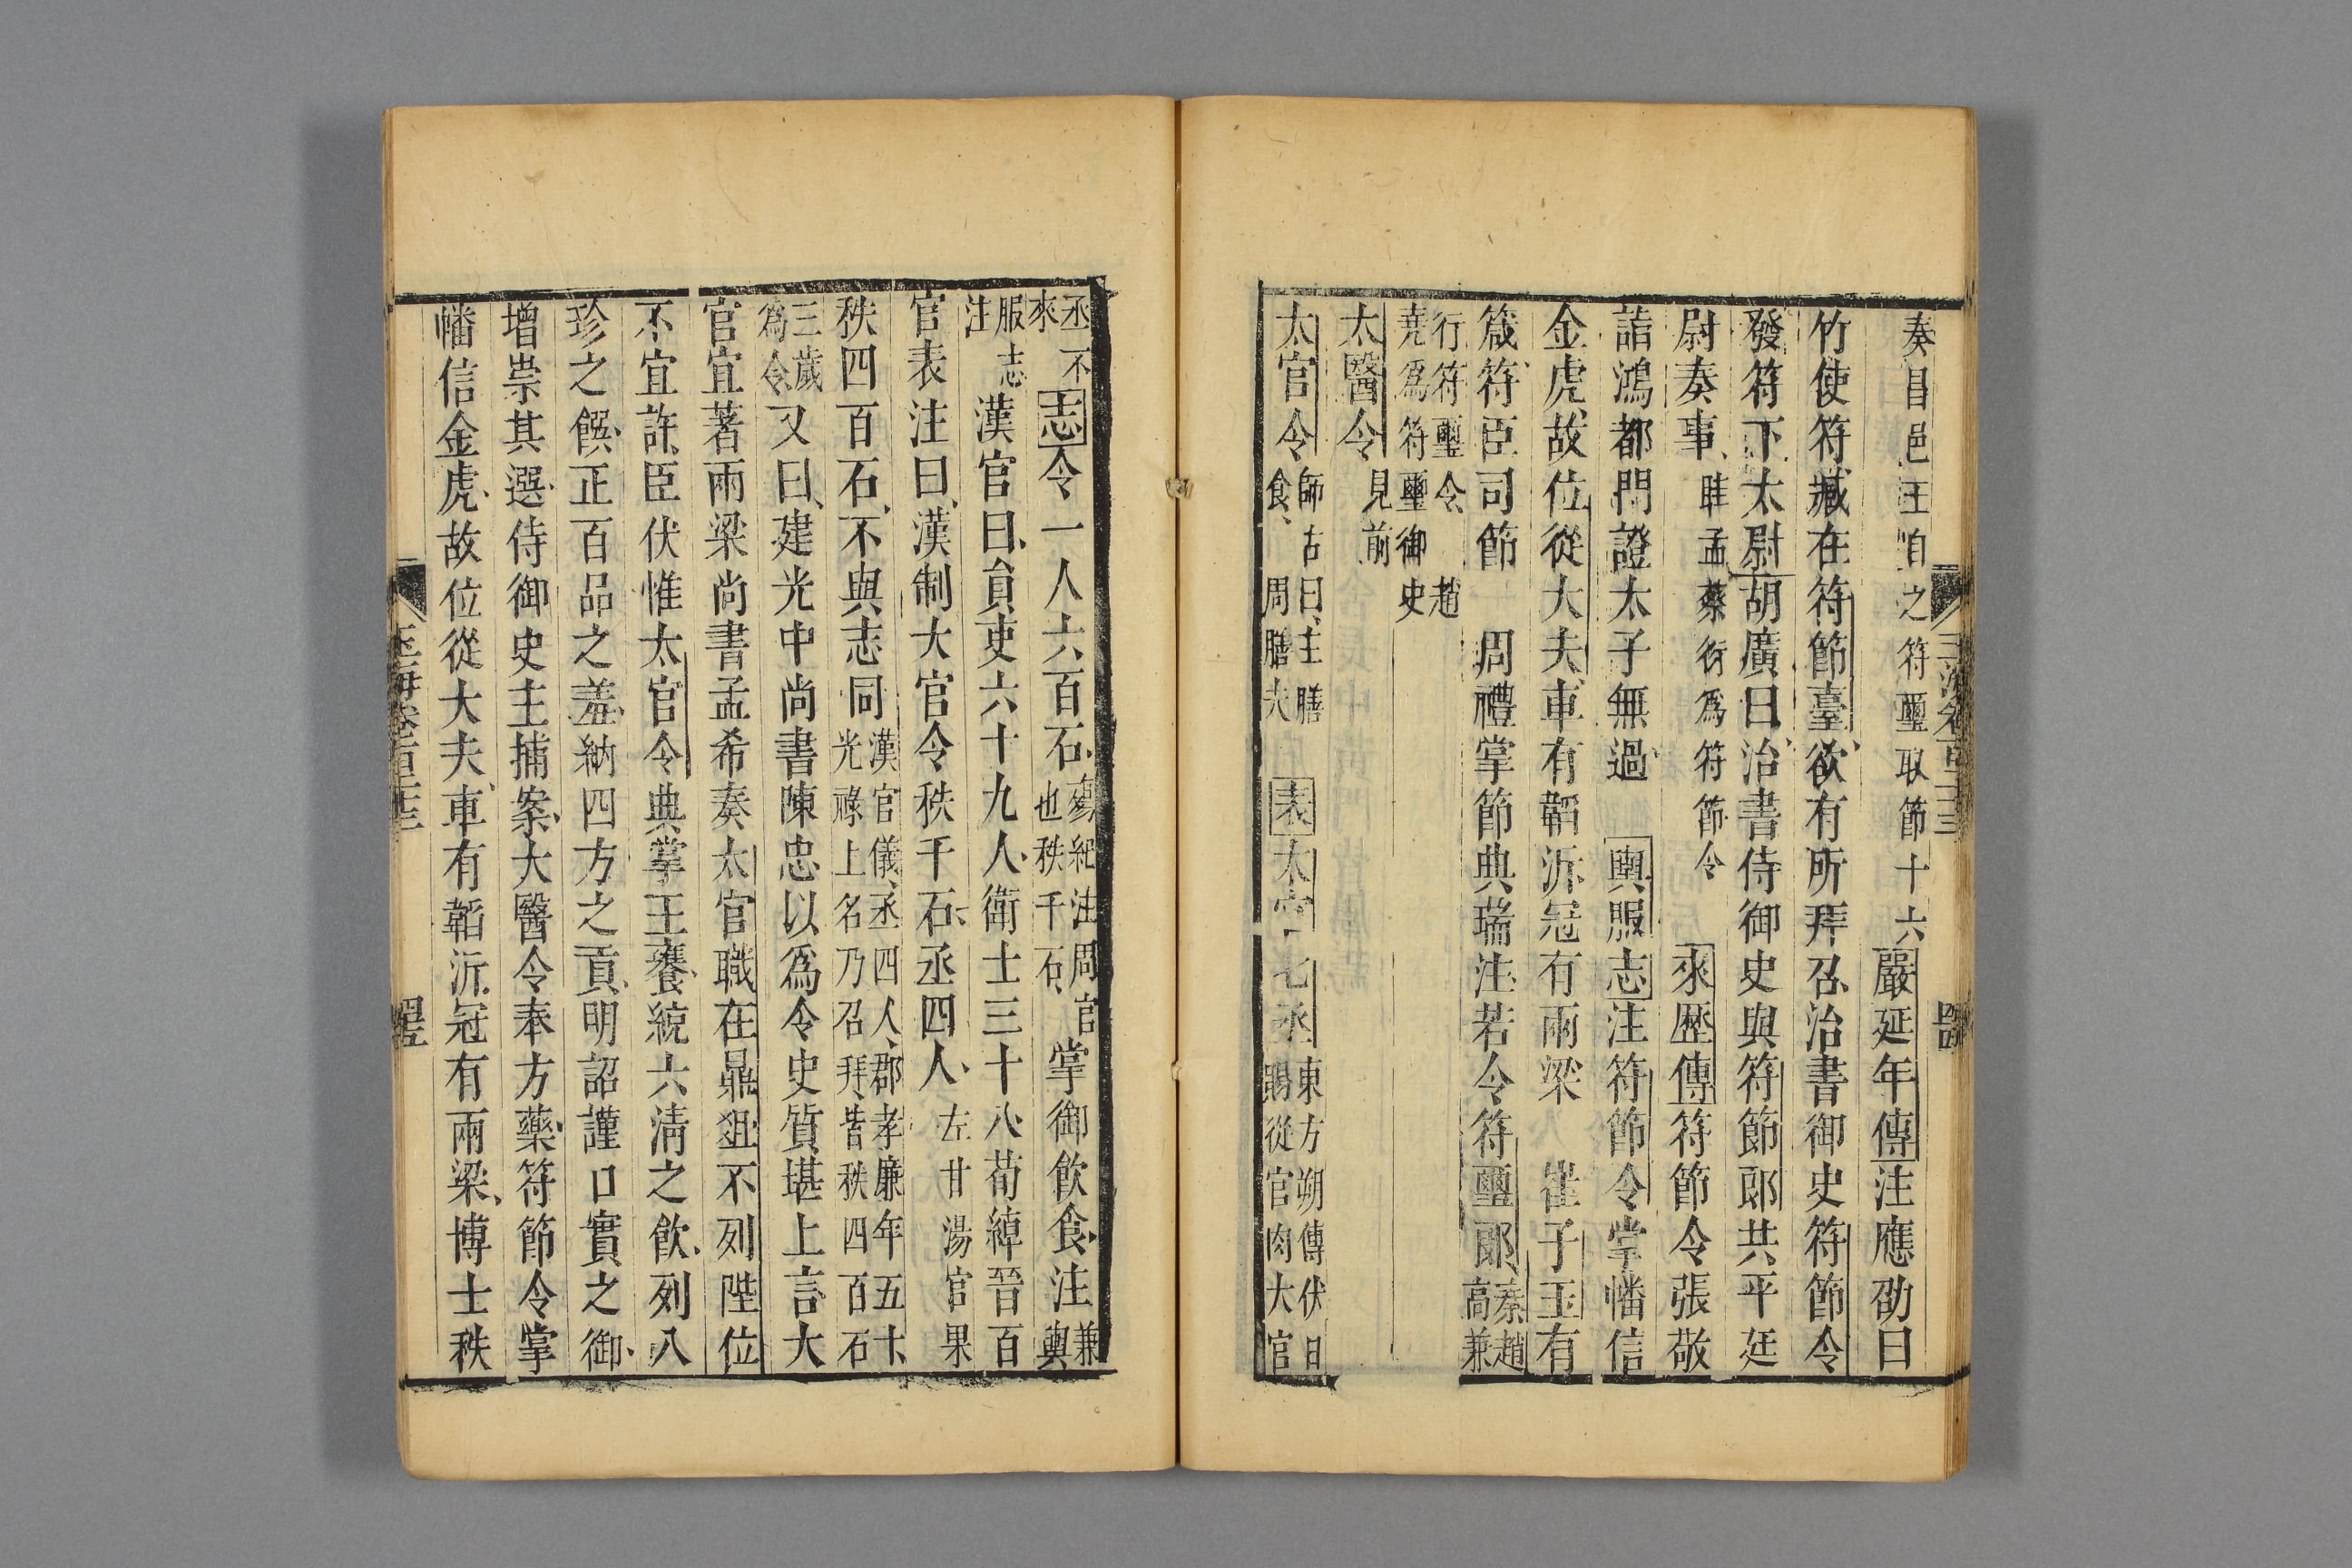 奏昌邑王自之符璽取節十六嚴延年傳注應劭曰
竹使符臧在符節臺欲有所拜召治書御史符節令
發符下太尉胡廣曰治書侍御史與符節郎共平廷
尉奏事眭孟蔡衍爲符節令來歷傳符節令張敬
詣鴻都門證太子無過輿服志注符節令掌幡信
金虎故位從大夫車有韜泝冠有兩梁崔子玉有
箴符臣司節周禮掌節典瑞注若令符璽郎秦趙
高兼
行符璽令趙
堯爲符璽御史
太醫令見前
太官令師古曰主膳
食周膳夫表太官七丞東方朔傳伏日
賜從官肉大官
丞不
來志令一人六百石桓紀注周官
也秩千石掌御飲食注兼輿
服志
注漢官曰員吏六十九人衛士三十八荀綽晉百
官表注曰漢制大官令秩千石丞四人左甘湯官果
秩四百石不與志同漢官儀丞四人郡孝廉年五十
光祿上名乃召拜皆秩四百石
三歲
爲令又曰建光中尚書陳忠以爲令史質堪上言大
官宜著兩梁尚書孟希奏太官職在鼎俎不列陛位
不宜許臣伏惟太官令典掌王饔統六清之飲列八
珍之饌正百品之羞納四方之貢明詔謹口實之御
增崇其選侍御史主捕案大醫令奉方藥符節令掌
幡信金虎故位從大夫車有韜泝冠有兩梁博士秩